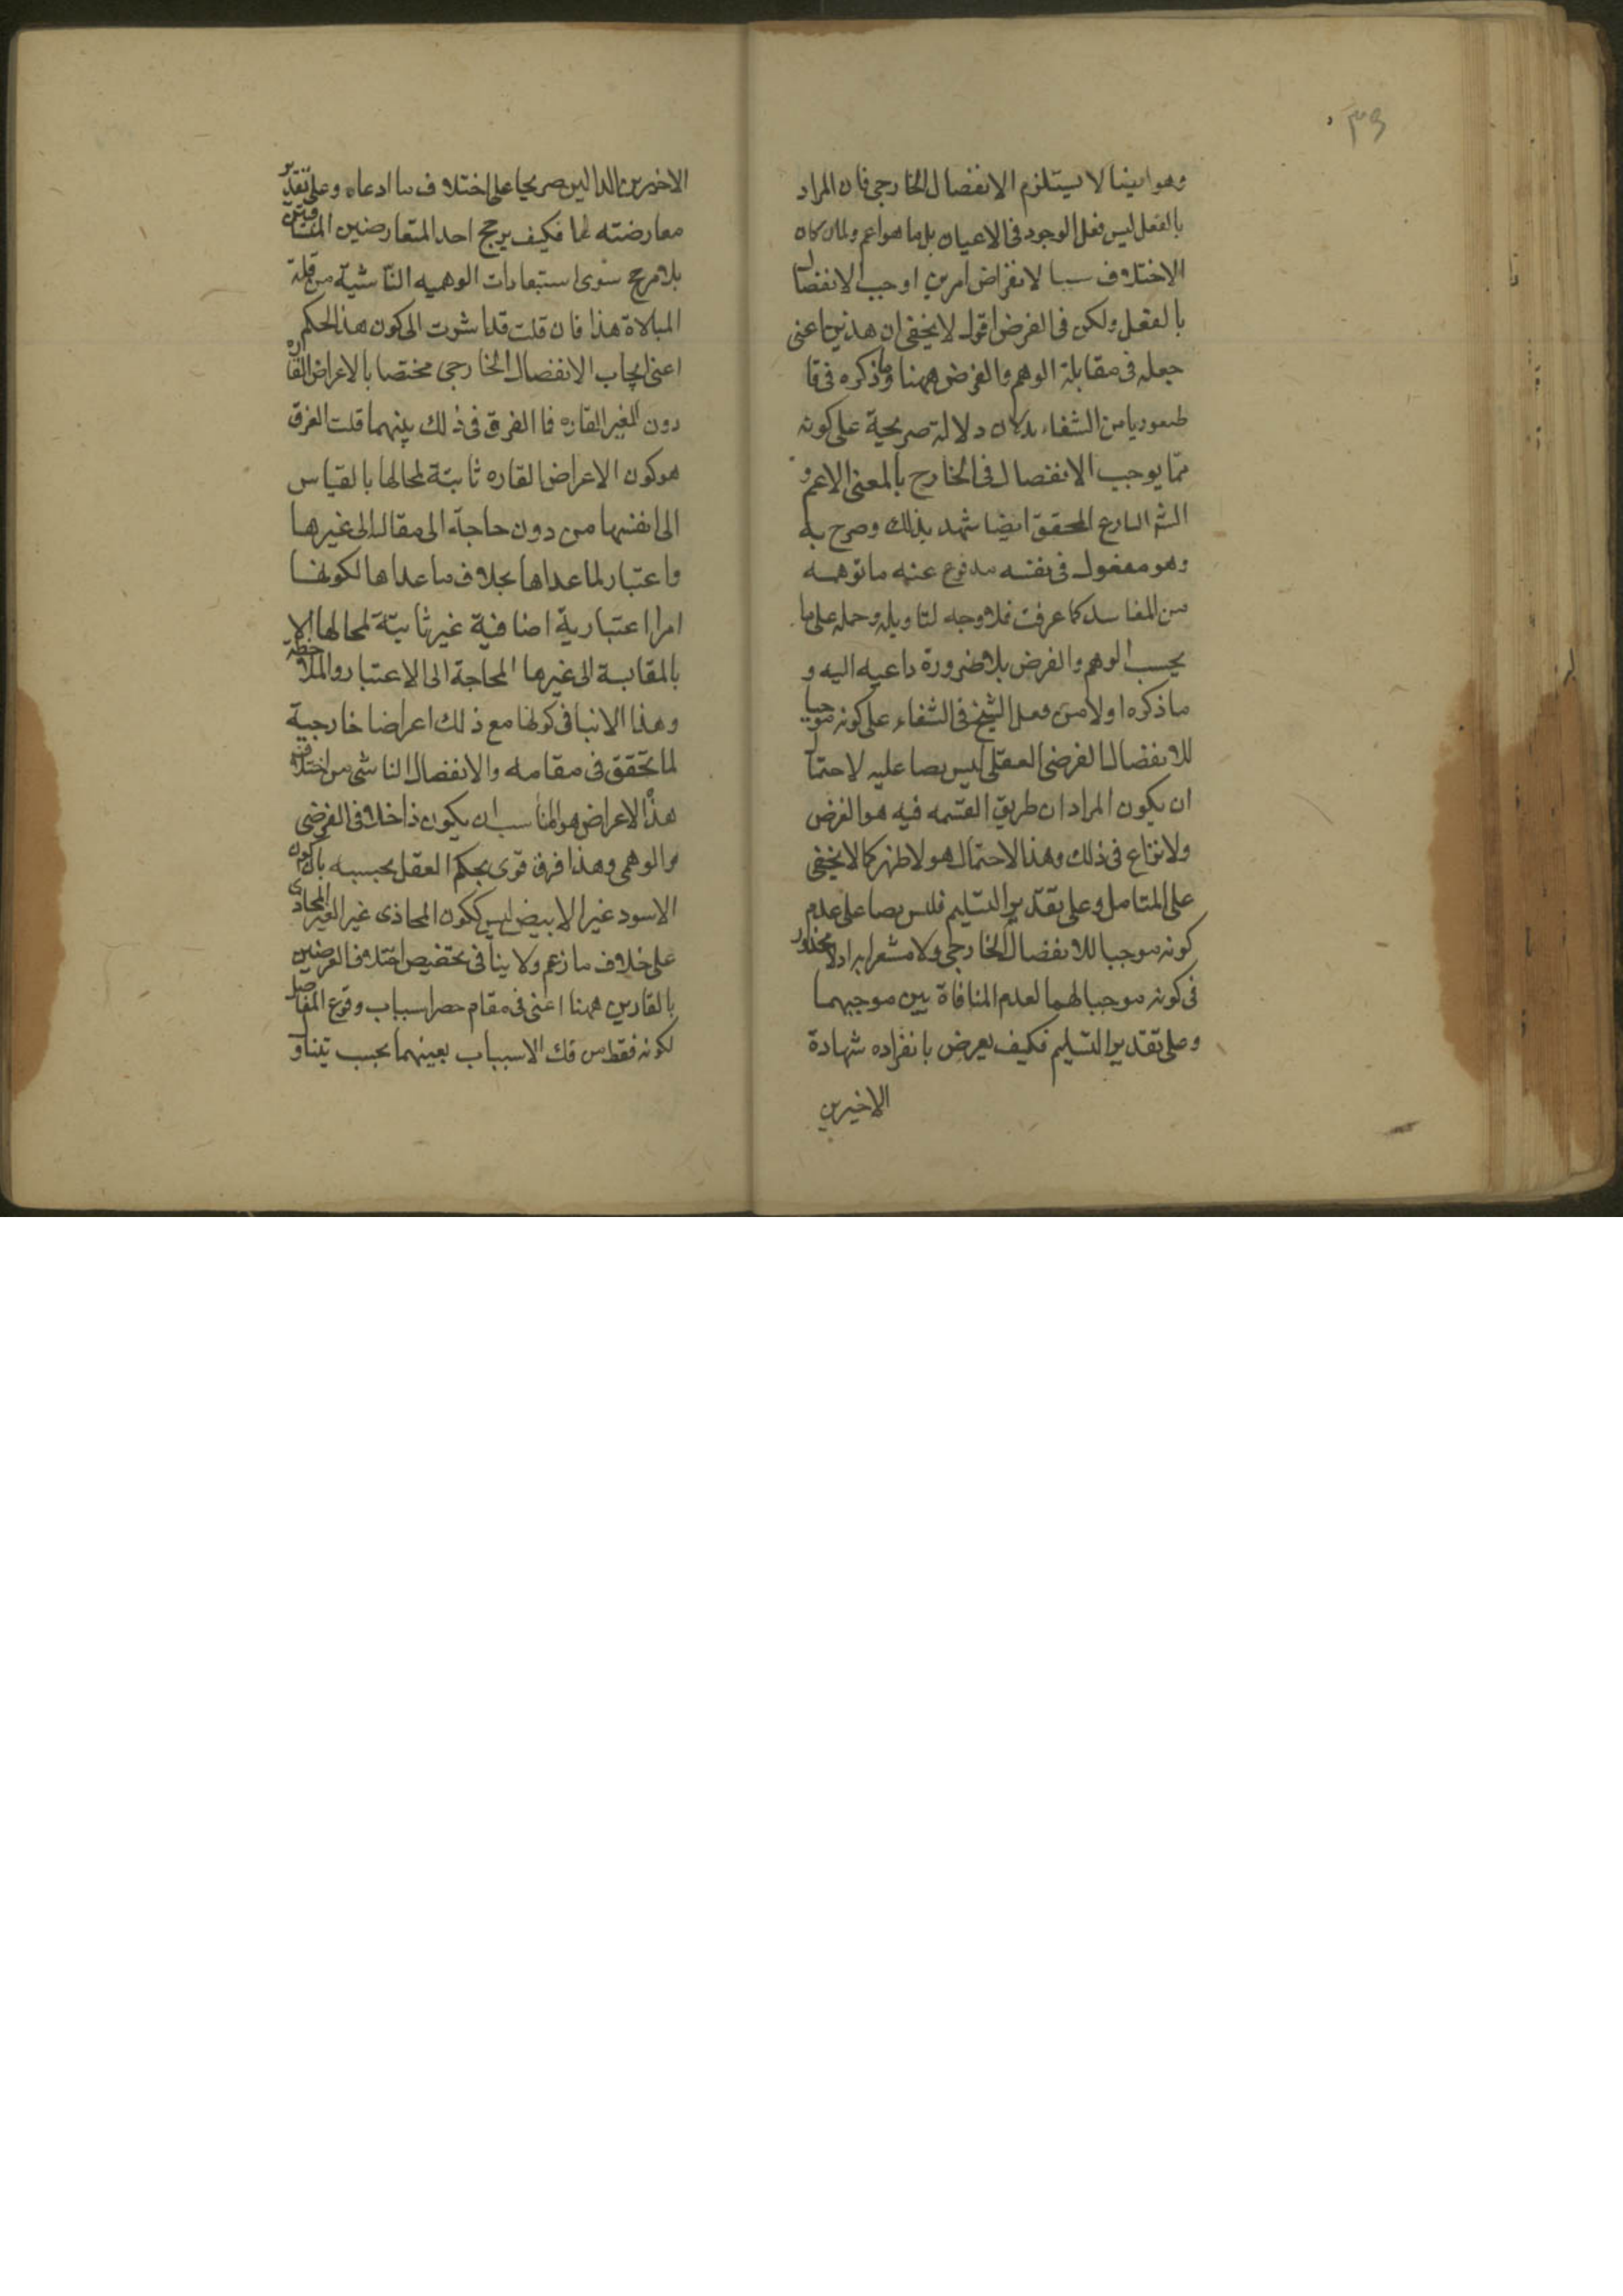 ٣٩
وهو ايضا لا يستلزم الانفصال الخارجى فان المراد
بالفعل ليس فعل الوجود فى الاعيان بل ما هو اعم ولما كان
الاختلاف سببا لانقراض امرين اوجب الانفصال
بالفعل ولكن فى الفرض اقول لا يخفى ان هذين اعنى
جعله فى مقابلة الوهم والفرض ههنا وما ذكره فى قا
طيغورياس الشفاء يدلان دلالة صريحة على كونه
مما يوجب الانفصال فى الخارج بالمعنى الاعم و
الشارح المحقق ايضا شهد بذلك وصرح به
وهو معقول فى نفسه مدفوع عنه ما توهمه
من المفاسد كما عرفت فلا وجه لتاويله وحمله على ما
بحسب الوهم والفرض بلا ضرورة داعيه اليه و
ما ذكره اولا من فعل الشيخ فى الشفاء على كونه موجبا
للانفصال الفرضى العقلى ليس نصا عليه لاحتمال
ان يكون المراد ان طريق القسمه فيه هو الفرض
ولا نزاع فى ذلك وهذا الاحتمال هو الاظهر كما لا يخفى
على المتامل وعلى تقدير التسليم فليس نصا على عدم
كونه موجبا للانفصال الخارجى ولا مشعرا به اذ لا محذور
فى كونه موجبا لهما لعدم المنافاة بين موجبهما
وعلى تقدير التسليم فكيف يعرض بانفراده شهادة
الاخيرين
الاخيرين الدالين صريحا على اختلاف ما ادعاه وعلى تقدير
معارضته لهما فكيف يرجح احد المتعارضين
بلا مرجح سوى استبعادات الوهميه الناشية من قلة
المبالاة هذا فان قلت قد اشرت الى كون هذا الحكم
اعنى ايجاب الانفصال الخارجى مختصا بالاعراض القاره
دون الغير القاره فا الفرق فى ذلك بينهما قلت الفرق
هو كون الاعراض القاره ثابتة لمحالها بالقياس
الى انفسها من دون حاجة الى مقال الى غيرها
واعتبار لما عداها بخلاف ما عداها لكونها
امرا اعتبارية اضافية غير ثابتة لمحالها الا
بالمقايسة الى غيرها المحاجة الى الاعتبار والملاحظه
وهذا لا ينافى كونها مع ذلك اعراضا خارجية
لما تحقق فى مقامه والانفصال الناشى من اختلاف
هذه الاعراض هو المناسب ان يكون داخلا فى الفرضى
والوهمى وهذا فرق قوى يحكم العقل بحسبه بان كون
الاسود غير الابيض ليس ككون المحاذى غير الغير المحاذى
على خلاف ما زعم ولا ينافى تخصيص اختلاف العرضين
بالقارين ههنا اعنى فى مقام حصر اسباب وقوع المفاصل
لكونه فقط من تلك الاسباب بعينهما بحسب تناو